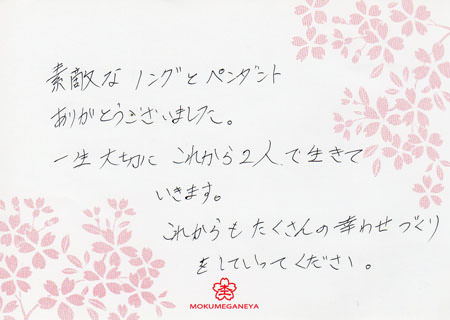 素敵なリングとペンダント
ありがとうございました。
一生大切に これから2人で生きて
いきます。
これからも たくさんの幸わせづくり
をしていってください。
MOKUMEGANEYA